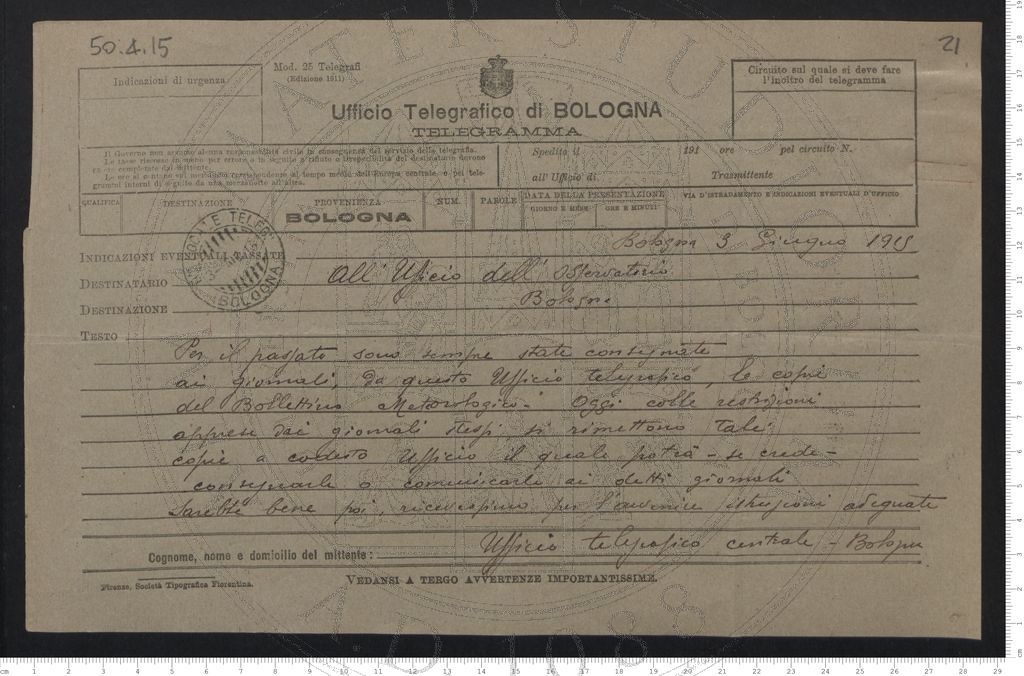 50.4.15
21
Indicazioni di urgenza
Mod. 25 Telegrafi
(Edizione 1911)
Circuito sul quale si deve fare
l'inoltro del telegramma
Ufficio Telegrafico di BOLOGNA
TELEGRAMMA
Il Governo non assume alcuna responsabilità civile in conseguenza del servizio della telegrafia.
Le tasse riscosse in meno per errore o in seguito a rifiuto o irreperibilità del destinatario devono
essere completate dal mittente.
Le ore si contano sul meridiano corrispondente al tempo medio dell'Europa centrale, e pei tele-
grammi interni di seguito da una mezzanotte all'altra.
Spedito il 191 ore pel circuito N.
all'Ufficio di Trasmittente
QUALIFICA DESTINAZIONE PROVENIENZA NUM. PAROLE DATA DELLA PRESENTAZIONE VIA D'ISTRADAMENTO E INDICAZIONI EVENTUALI D'UFFICIO
BOLOGNA GIORNO E MESE ORE E MINUTI
BOLOGNA
Bologna 3 Giugno 1915
INDICAZIONI EVENTUALI TASSATE
DESTINATARIO All' Uficio dell' Osservatorio
DESTINAZIONE Bologna
TESTO
Per il passato sono sempre state consegnate
ai giornali, da questo Ufficio telegrafico, le copie
del Bollettino Meteorologico. Oggi colle restrizioni
apprese dai giornali stessi si rimettono tali
copie a codesto Ufficio il quale potrà - se crede -
consegnarle o comunicarle ai detti giornali
Sarebbe bene poi, ricevessimo per l'avvenire istruzioni adeguate
Cognome, nome e domicilio del mittente: Ufficio telegrafico centrale - Bologna
Firenze, Società Tipografica Fiorentina.
VEDANSI A TERGO AVVERTENZE IMPORTANTISSIME.